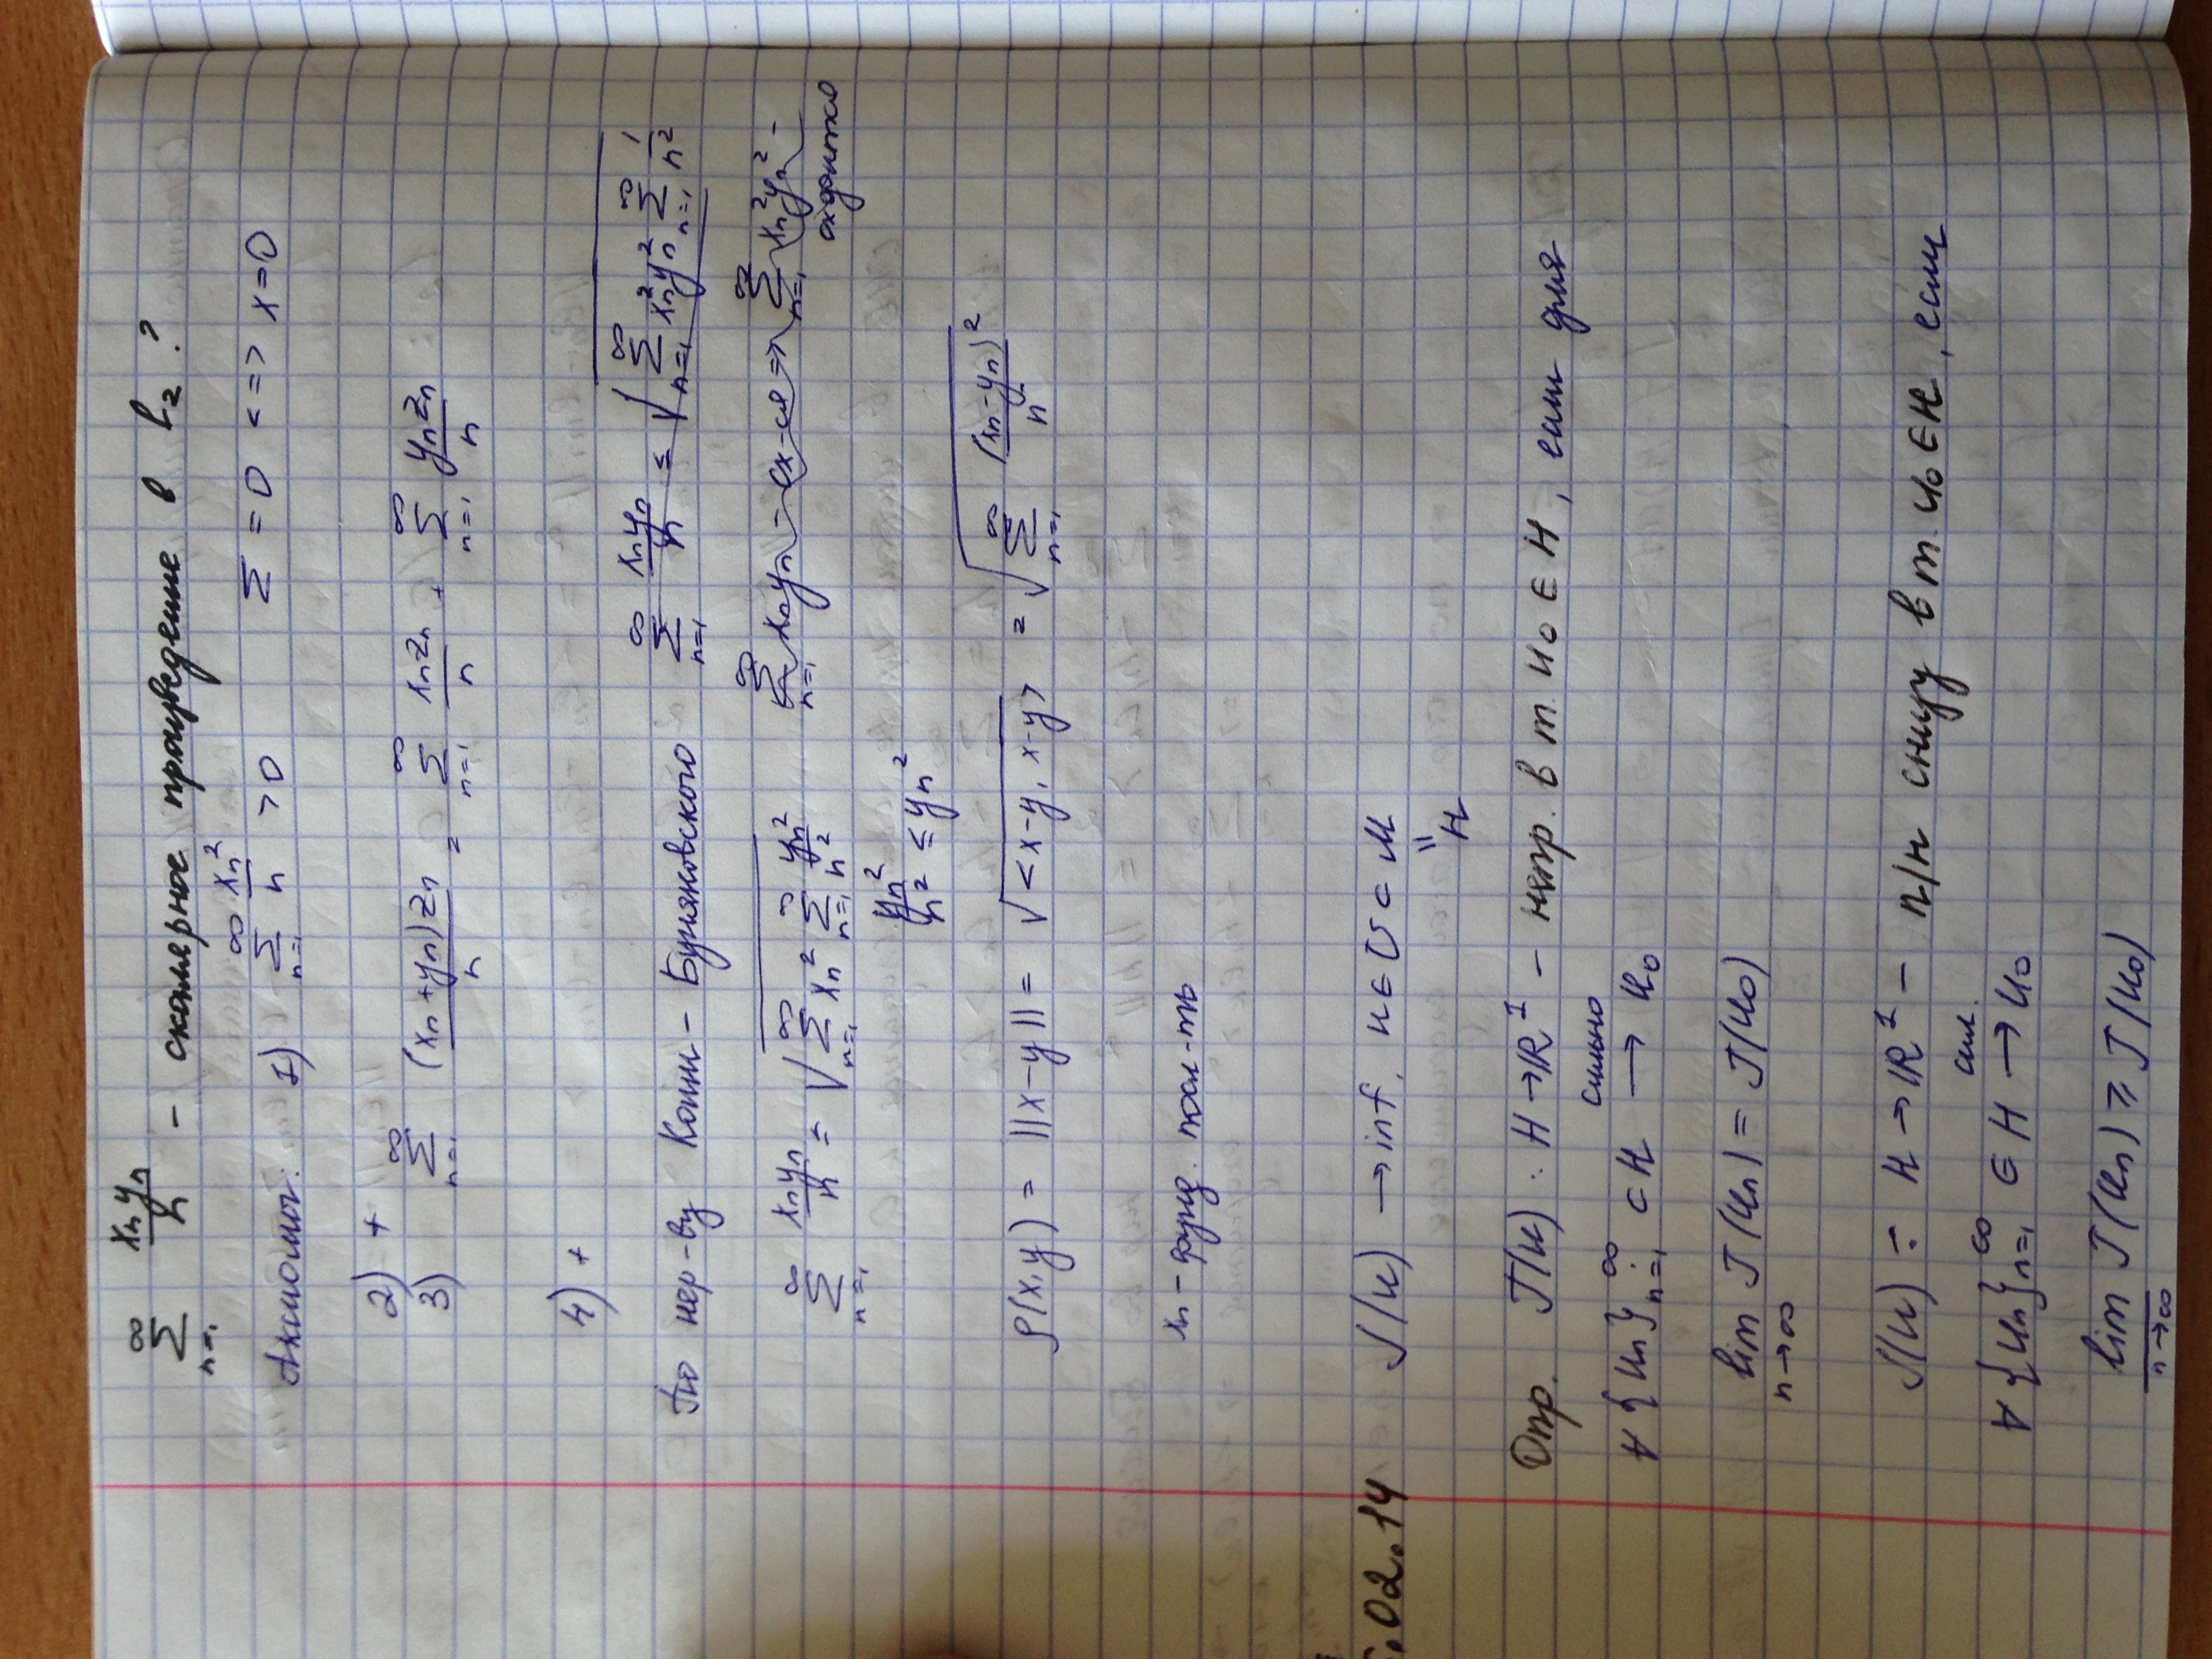 ∑_{n=1}^{∞} xₙyₙ/n – скалярное произведение в l₂?
Аксиомы: 1) ∑_{n=1}^{∞} xₙ²/n > 0   ∑ = 0 <=> x = 0
2) +
3) ∑_{n=1}^{∞} (xₙ + yₙ)zₙ/n = ∑_{n=1}^{∞} xₙzₙ/n + ∑_{n=1}^{∞} yₙzₙ/n
4) +
По нер-ву Коши – Буняковского   ∑_{n=1}^{∞} xₙyₙ/n ≤ √(∑_{n=1}^{∞} xₙ²yₙ² ∑_{n=1}^{∞} 1/n²)
∑_{n=1}^{∞} xₙyₙ/n ≤ √(∑_{n=1}^{∞} xₙ² ∑_{n=1}^{∞} yₙ²/n²)   ∑_{n=1}^{∞} xₙyₙ – сх-ся => ∑_{n=1}^{∞} xₙ²yₙ² –
сходится
yₙ²/n² ≤ yₙ²
ρ(x,y) = ||x – y|| = √<x–y, x–y> = √(∑_{n=1}^{∞} (xₙ–yₙ)²/n)
xₙ – фунд. посл-ть
.02.14 J(u) → inf, u ∈ U ⊂ H
" H
Опр. J(u): H → ℝ¹ – непр. в т. u₀ ∈ H, если для
∀ {uₙ}_{n=1}^{∞} ⊂ H сильно → u₀
lim_{n→∞} J(uₙ) = J(u₀)
J(u): H → ℝ¹ – п/н снизу в т. u₀ ∈ H, если
∀ {uₙ}_{n=1}^{∞} ∈ H сил. → u₀
lim_{n→∞} J(uₙ) ≥ J(u₀)